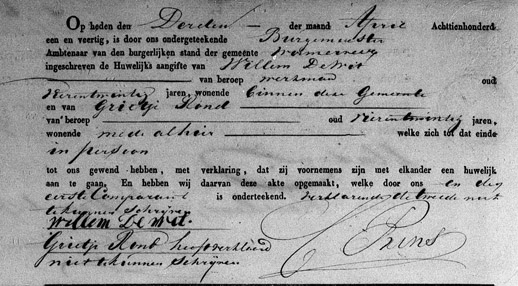 Op heden den Derden der maand April Achttienhonderd
een en veertig, is door ons ondergeteekende Burgemeester
Ambtenaar van den burgerlijken stand der gemeente Wormerveer
ingeschreven de Huwelijks aangifte van Willem De Wit
van beroep wersman oud
Vierentwintig jaren, wonende binnen deze Gemeente
en van Grietje Rond
van beroep oud Vierentwintig jaren,
wonende mede alhier welke zich tot dat einde
in persoon
tot ons gewend hebben, met verklaring, dat zij voornemens zijn met elkander een huwelijk
aan te gaan, En hebben wij daarvan deze akte opgemaakt, welke door ons en den
eerste Comparant is onderteekend. verklarende de tweede niet
te kunnen schrijven
Willem De Wit.
Grietje Rond heeft verklaard
niet te kunnen schrijven
Prins